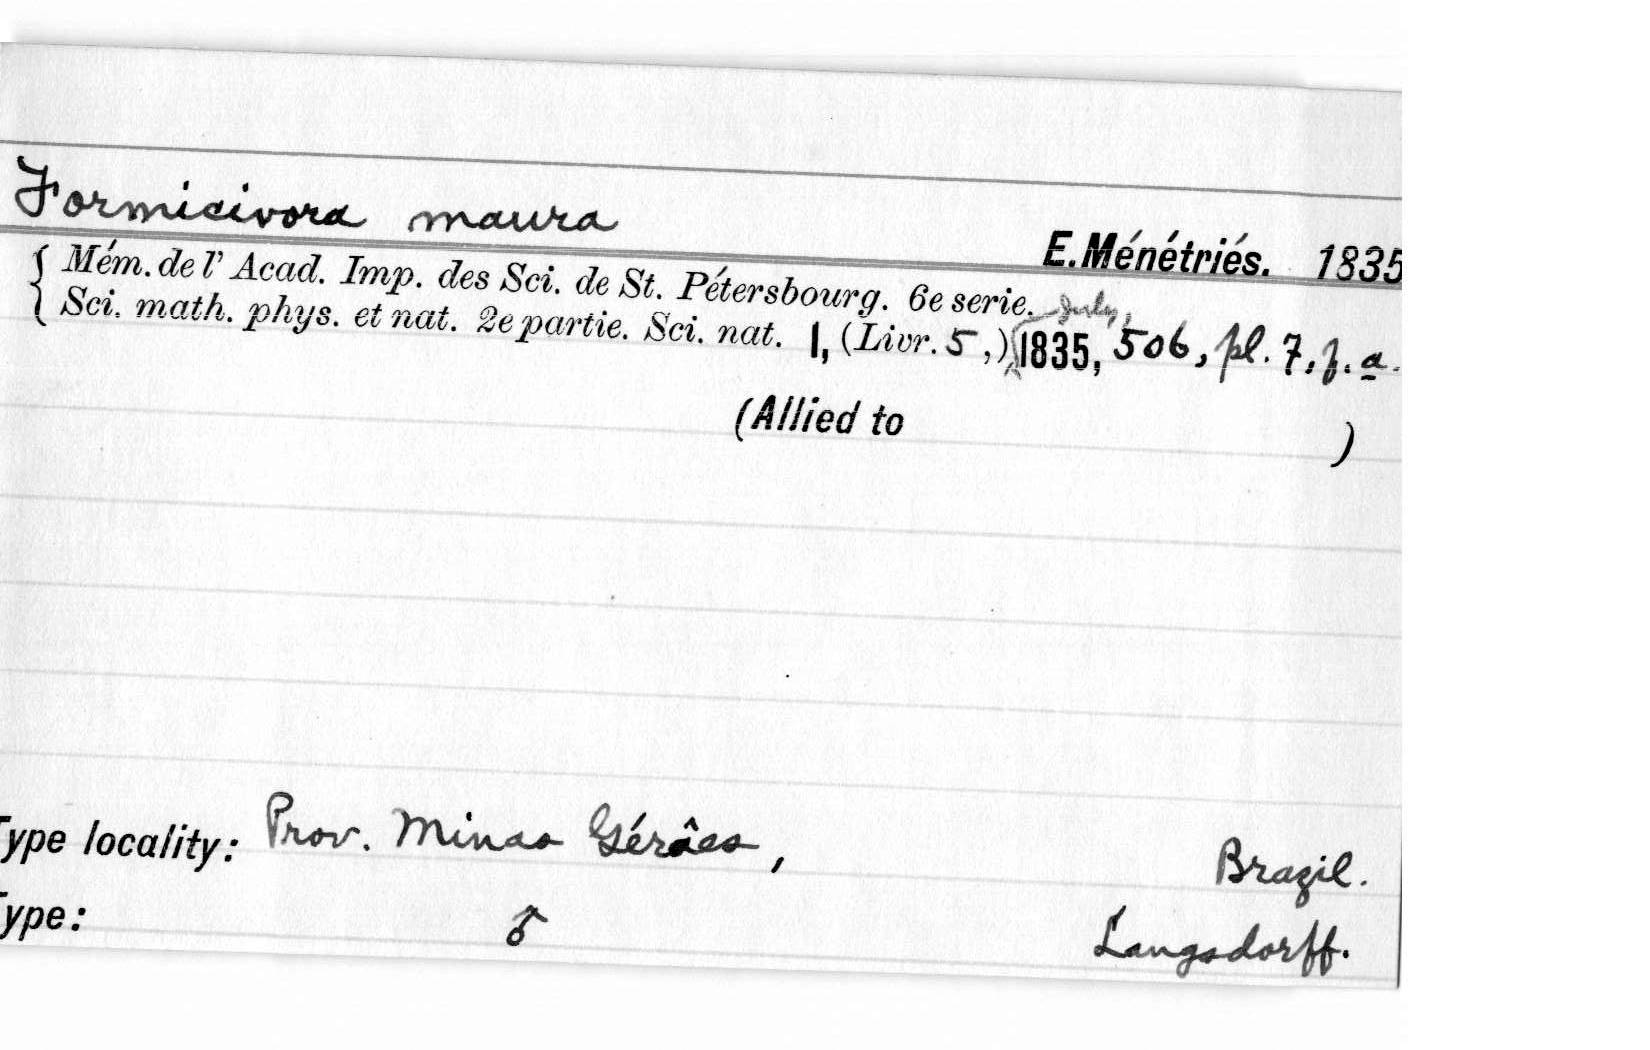 Formicivora maura
E. Ménétriés. 1835
{ Mém. de l' Acad. Imp. des Sci. de St. Pétersbourg. 6e serie.
Sci. math. phys. et nat. 2e partie. Sci. nat. 1, (Livr. 5,) July, 1835, 506, pl. 7, f. a.
(Allied to )
Type locality: Prov. Minas Gérâes, Brazil.
Type: ♂ Langsdorff.